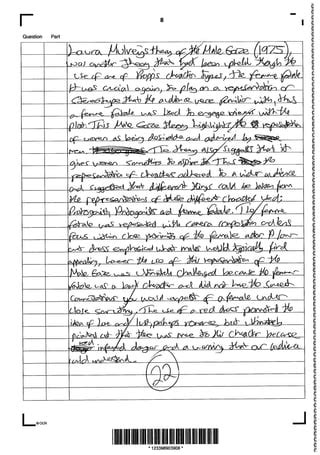 8
Question Part
Laura Mulveys theory of the Male Gaze (1975),
was another theory that had been upheld through the
use of one of Propps character types, the femme fatale.
It was crucial again, to play on a representation or
stereotype that the audience were familiar with, thus
a femme fatale was used to engage viewers with the
plot. This Male Gaze theory highlights the representation
of women as being desirable and admired by
men. The theory also suggests that it
gives women something to aspire to. This the
representation of characters adhered to a wider audience
and suggested that different things could be taken from
the representations of these different characters used:
Protagonist, Antagonist and femme fatale. The femme
fatale was represented with camera composition and lens
focus when close pointing of the female after
dress emphasised what males would typically find
appealing, however the use of this representation of the
Male Gaze was ultimately challenged because the femme
fatale was a character and did not have the
connotations you would expect of a female under
close scrutiny. The use of a red dress promoted the
idea of love and lust, perhaps romance, but ultimately
pointed out that there was more to this character because
red inferred danger and a warning that our audience
could understand.
22
© OCR